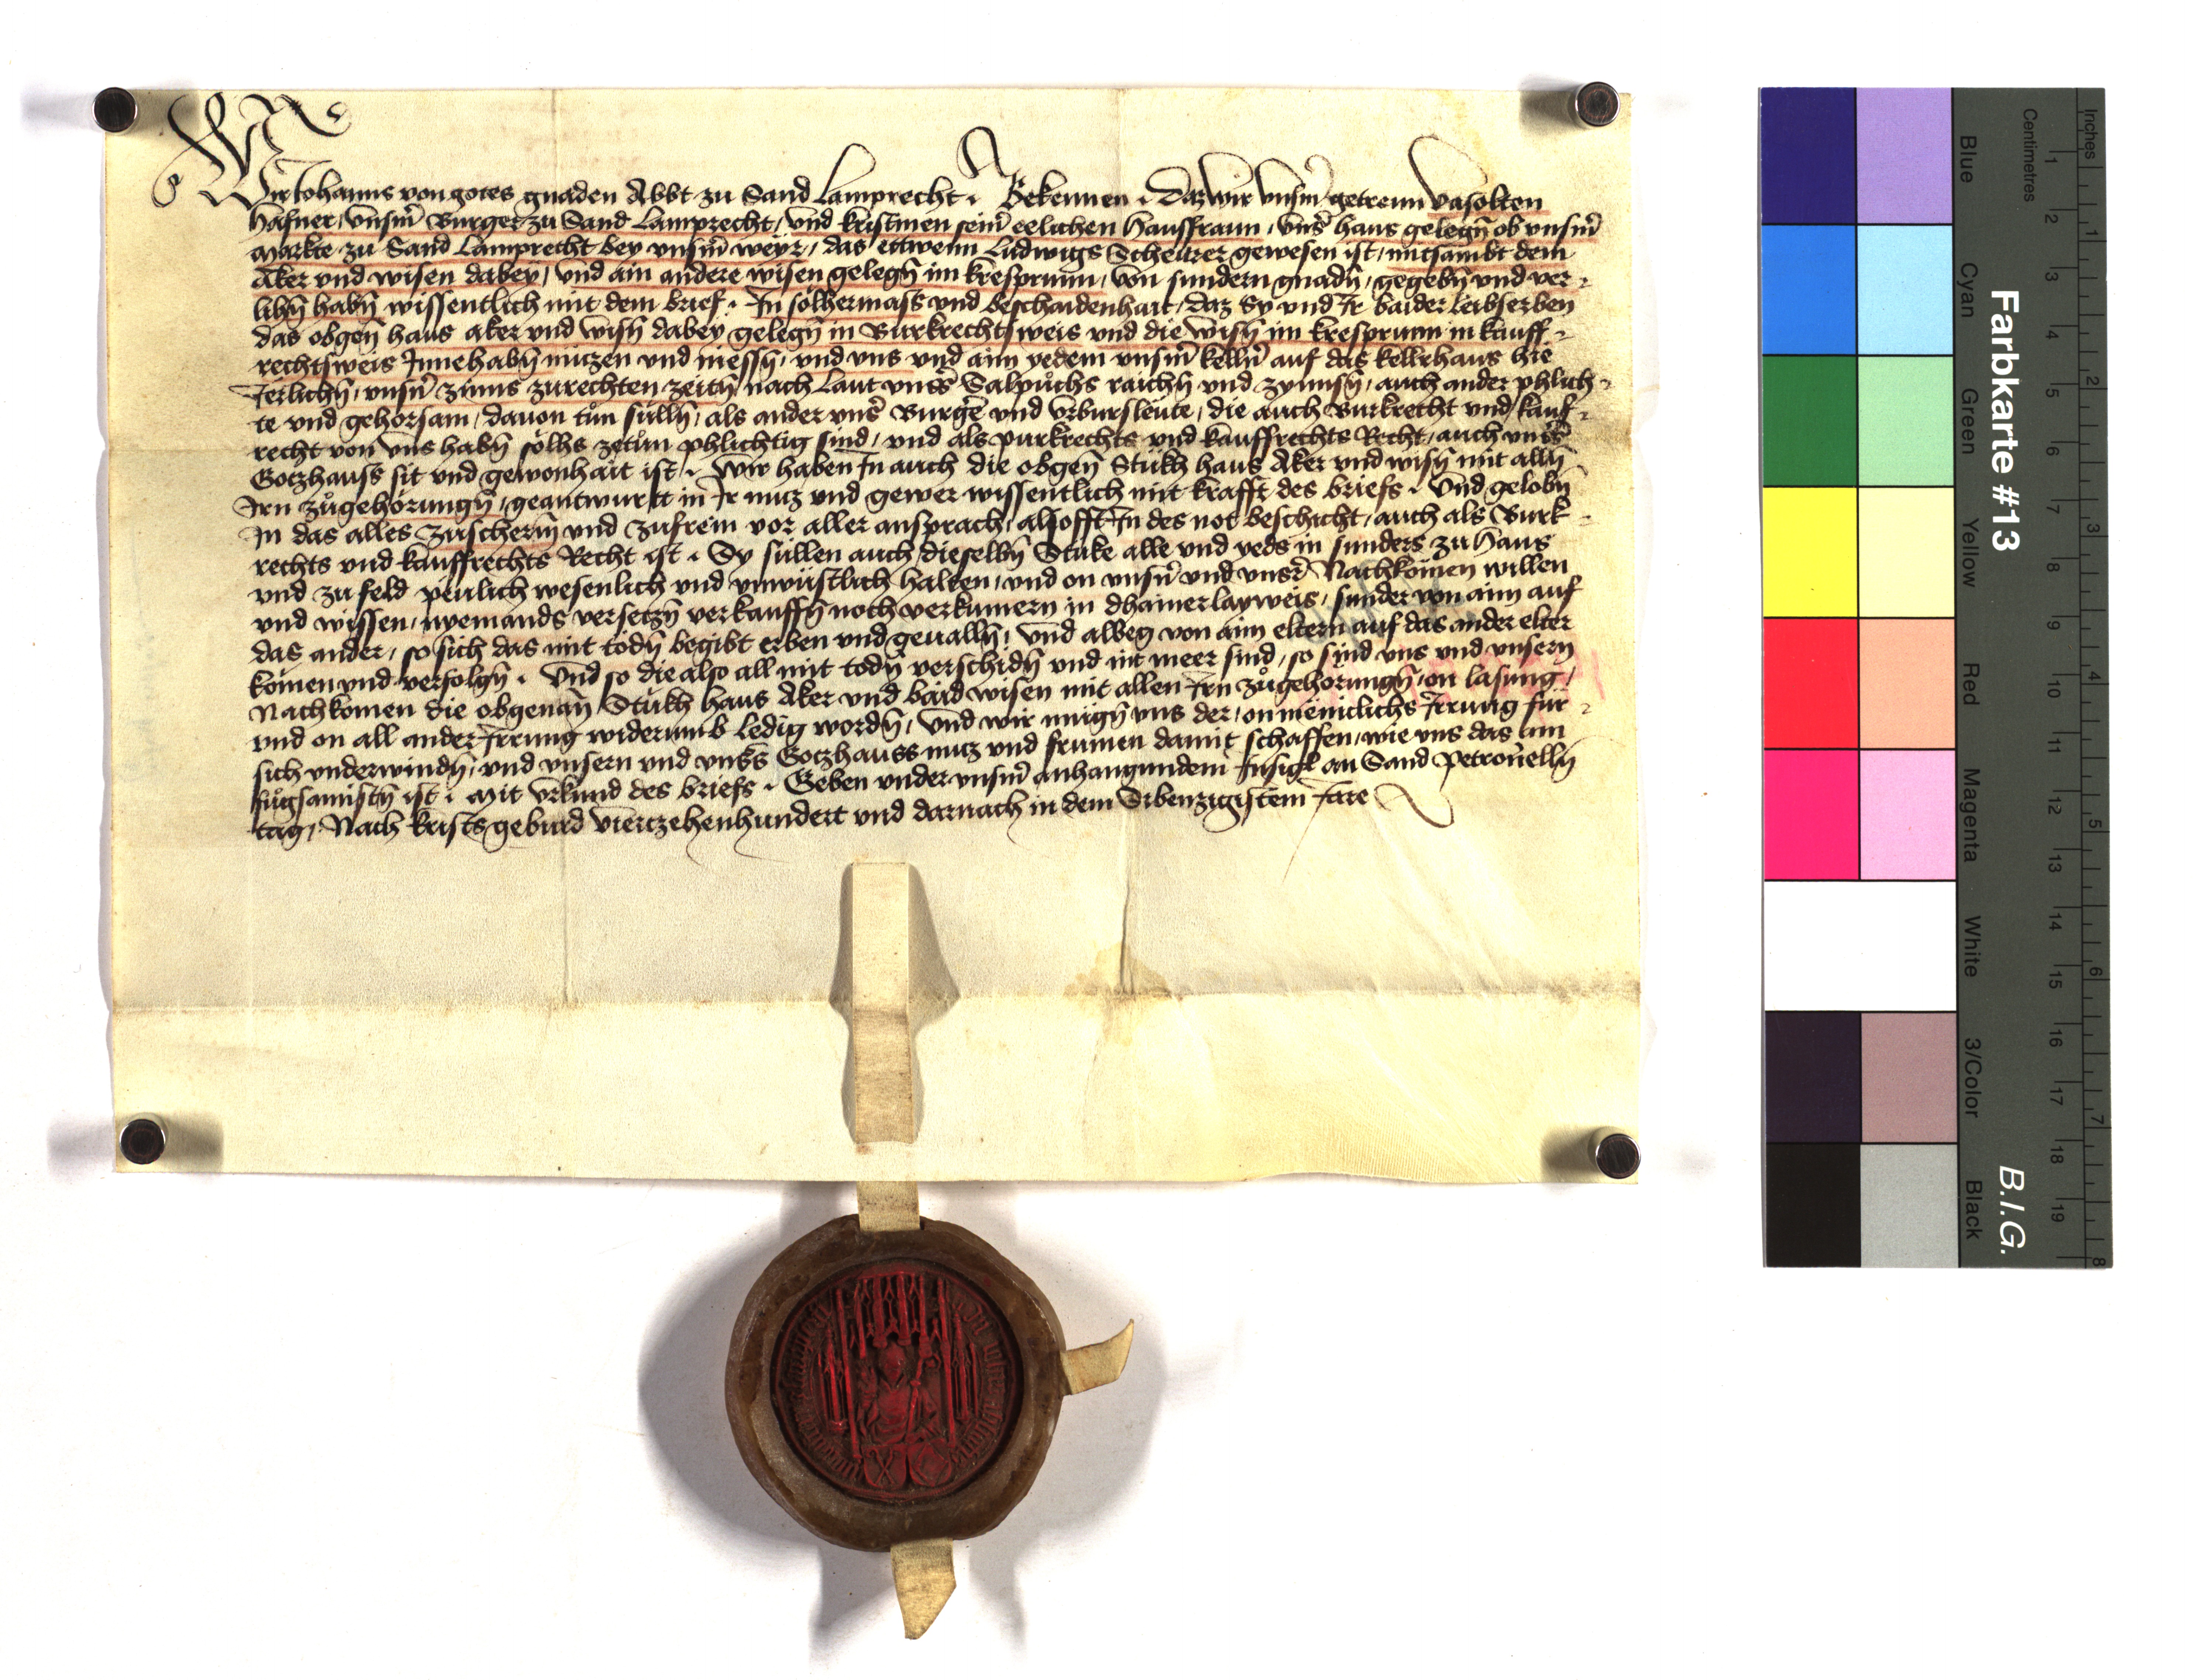 Wir Johanns von gotes gnaden Abbt zu Sand Lamprecht. Bekennen. Daz wir unsm̄ getrewn Vasolten
Hafner, Unsm̄ Burger zu Sand Lamprecht, und kristinen sein̄ eelichen Hausfraun, Uns̄ haus gelegn̄ ob unsm̄
Markte zu Sand Lamprecht bey unsm̄ weyr, das ettwenn Ludwigs Scheurer gewesen ist, mitsambt dem
Aker und wisen dabey, und ain andere wisen gelegn̄ im kresprunn, von sundern gnadn̄, gegebn̄ und ver-
lihn̄ habn̄ wissentlich mit dem brief. In sölhermass und beschaidenhait, daz Sy und Ir baider leibserben
das obgen̄ haus aker und wisn̄ dabey gelegn̄ in Burkrechtsweis und die wisn̄ im kresprunn in kauff-
rechtsweis Innehabn̄ nuzen und niessn̄, und uns und aim yedem unsm̄ kelln̄ auf das kellrhaus hie
Jerlichn̄, unsn̄ zinns zurechten zeitn̄ nach Laut unss̄ Salpůchs raichn̄ und zynnsn̄, auch ander phlich-
te und gehorsam, dauon tůn sülln̄, als ander uns̄ Burgē und Urbursleute, die auch Burkrecht und kauf-
recht von uns habn̄ sölhs zetůn phlichtig sind, und als purkrechts und kauffrechts Recht, auch unss̄
Gotzhauss sit und gewonhait ist. Wir haben In auch die obgen̄ Stükh haus Aker und wisn̄ mit alln̄
Irn zůgehörungn̄, geantwurtt in Ir nuz und gewer wissentlich mit krafft des briefs. Und gelobn̄
In das alles zuscherm̄ und zufreın vor aller ansprach, alsofft In des not beschicht, auch als Burk-
rechts und kauffrechts Recht ist. Sy süllen auch dieselbn̄ Stuke alle und yeds in sunders zu Haus
und zu feld peulich wesenlich und unwüstlich halten, und on unsn̄ und unsr̄ Nachkomen willen
und wissen, nyemands versetzn̄ verkauffn̄ noch verkumern in dhainerlayweis, sunder von aim auf
das ander, so sich das mit todn̄ begibt erben und geualln̄, und albeg von aim eltern auf das ander elter
komen und verfolgn̄. Und so die also all mit todn̄ verschidn̄ und nit meer sind, so sind uns und unsern
Nachkomen die obgenan̄ Stükh haus Aker und baid wisen mit allen Irn zůgehörungn̄, on lasung,
und on all ander Irrung widerumb ledig wordn̄, und wir mügn̄ uns der, on meniclichs Irrung für-
sich underwindn̄, und unsern und unss̄ Gotzhauss nuz und frumen damit schaffen, wie uns das am
fůgsamistn̄ ist. Mit Urkund des briefs. Geben under unsm̄ anhangundem Insigl an Sand Petronelln̄
tag, Nach Krists geburd vierczehenhundert und darnach in dem Sibenzigistem Jare
Farbkarte #13
B.I.G.
Inches
Centimetres
1 2 3 4 5 6 7 8 9 10 11 12 13 14 15 16 17 18 19
1 2 3 4 5 6 7 8
Blue
Cyan
Green
Yellow
Red
Magenta
White
3/Color
Black